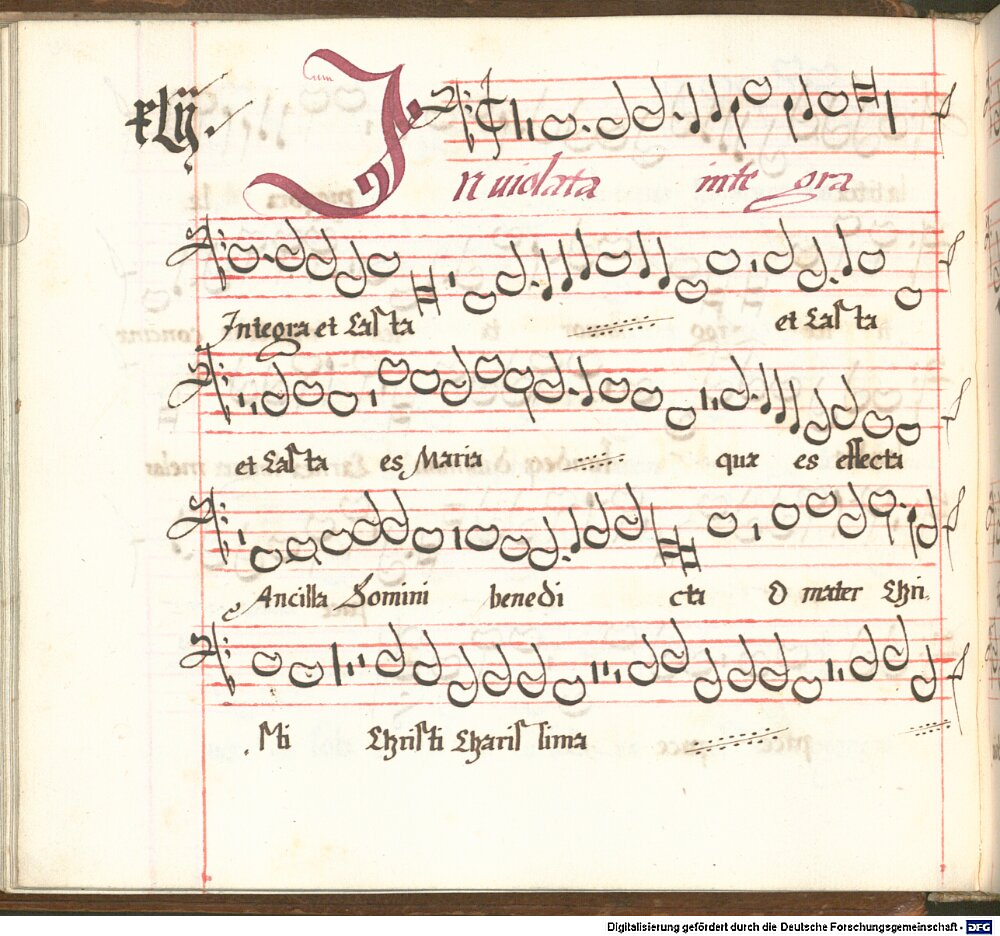 xlij.
Inuiolata integra
Integra et Casta et Casta
et Casta es Maria quæ es effecta
Ancilla Domini benedicta O mater Chri
sti Christi Charissima
Digitalisierung gefördert durch die Deutsche Forschungsgemeinschaft - DFG